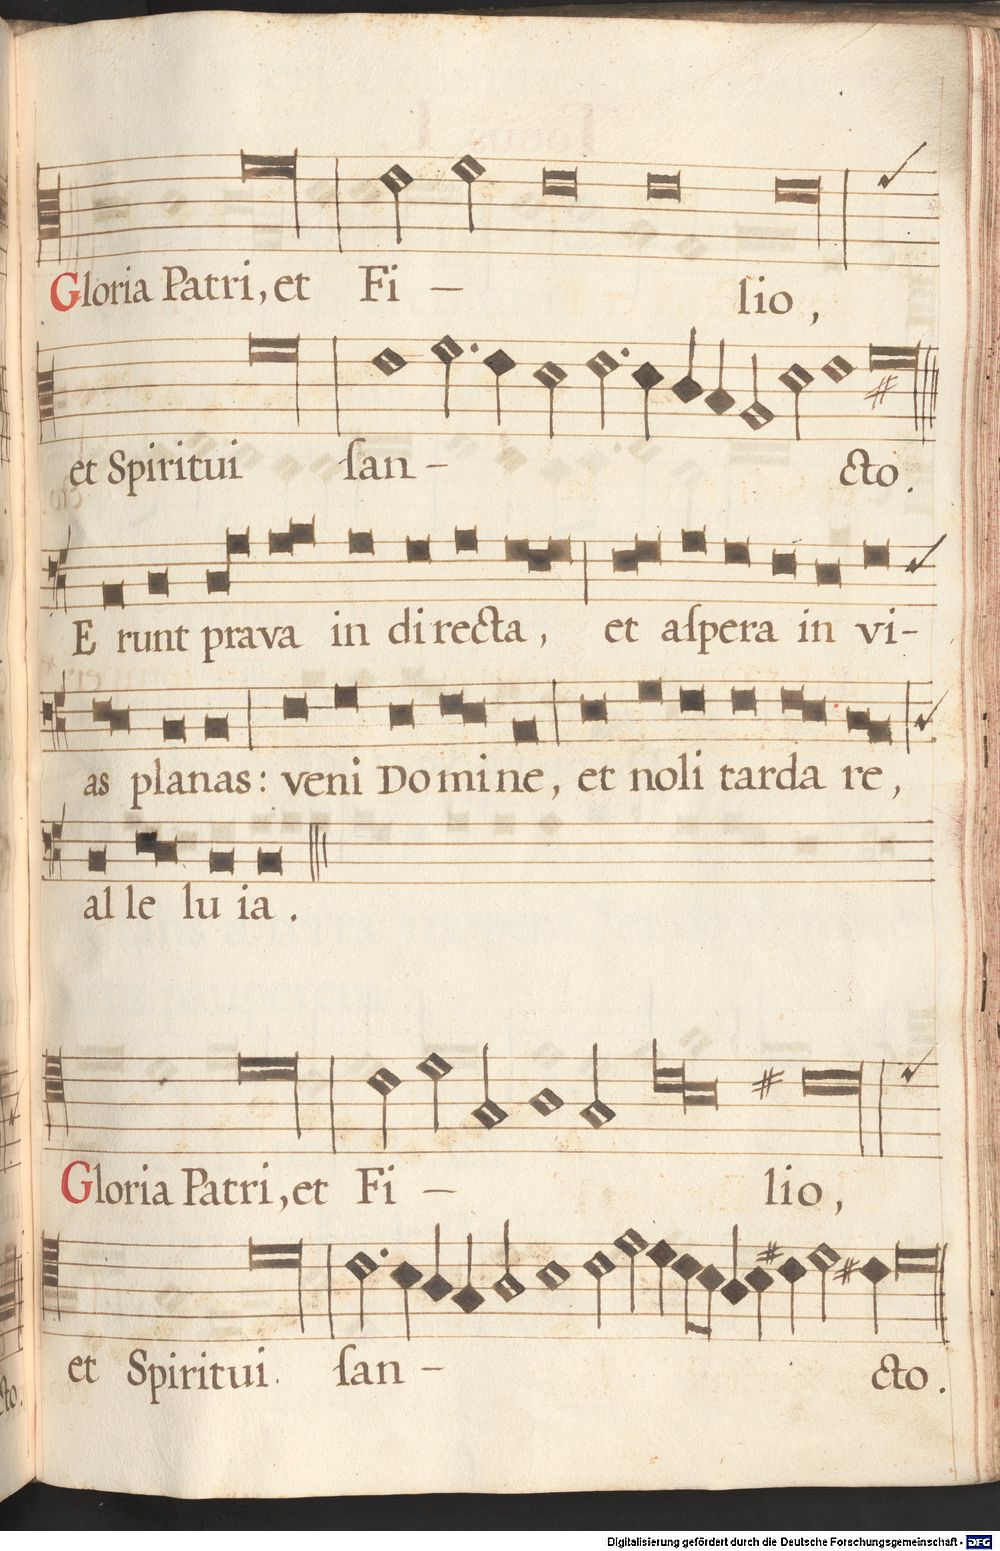 Gloria Patri, et Fi — lio,
et Spiritui ſan — cto.
E runt prava in di recta, et aſpera in vi-
as planas: veni Do mi ne, et noli tarda re,
al le lu ia.
Gloria Patri, et Fi — lio,
et Spiritui. ſan — cto.
Digitalisierung gefördert durch die Deutsche Forschungsgemeinschaft - DFG